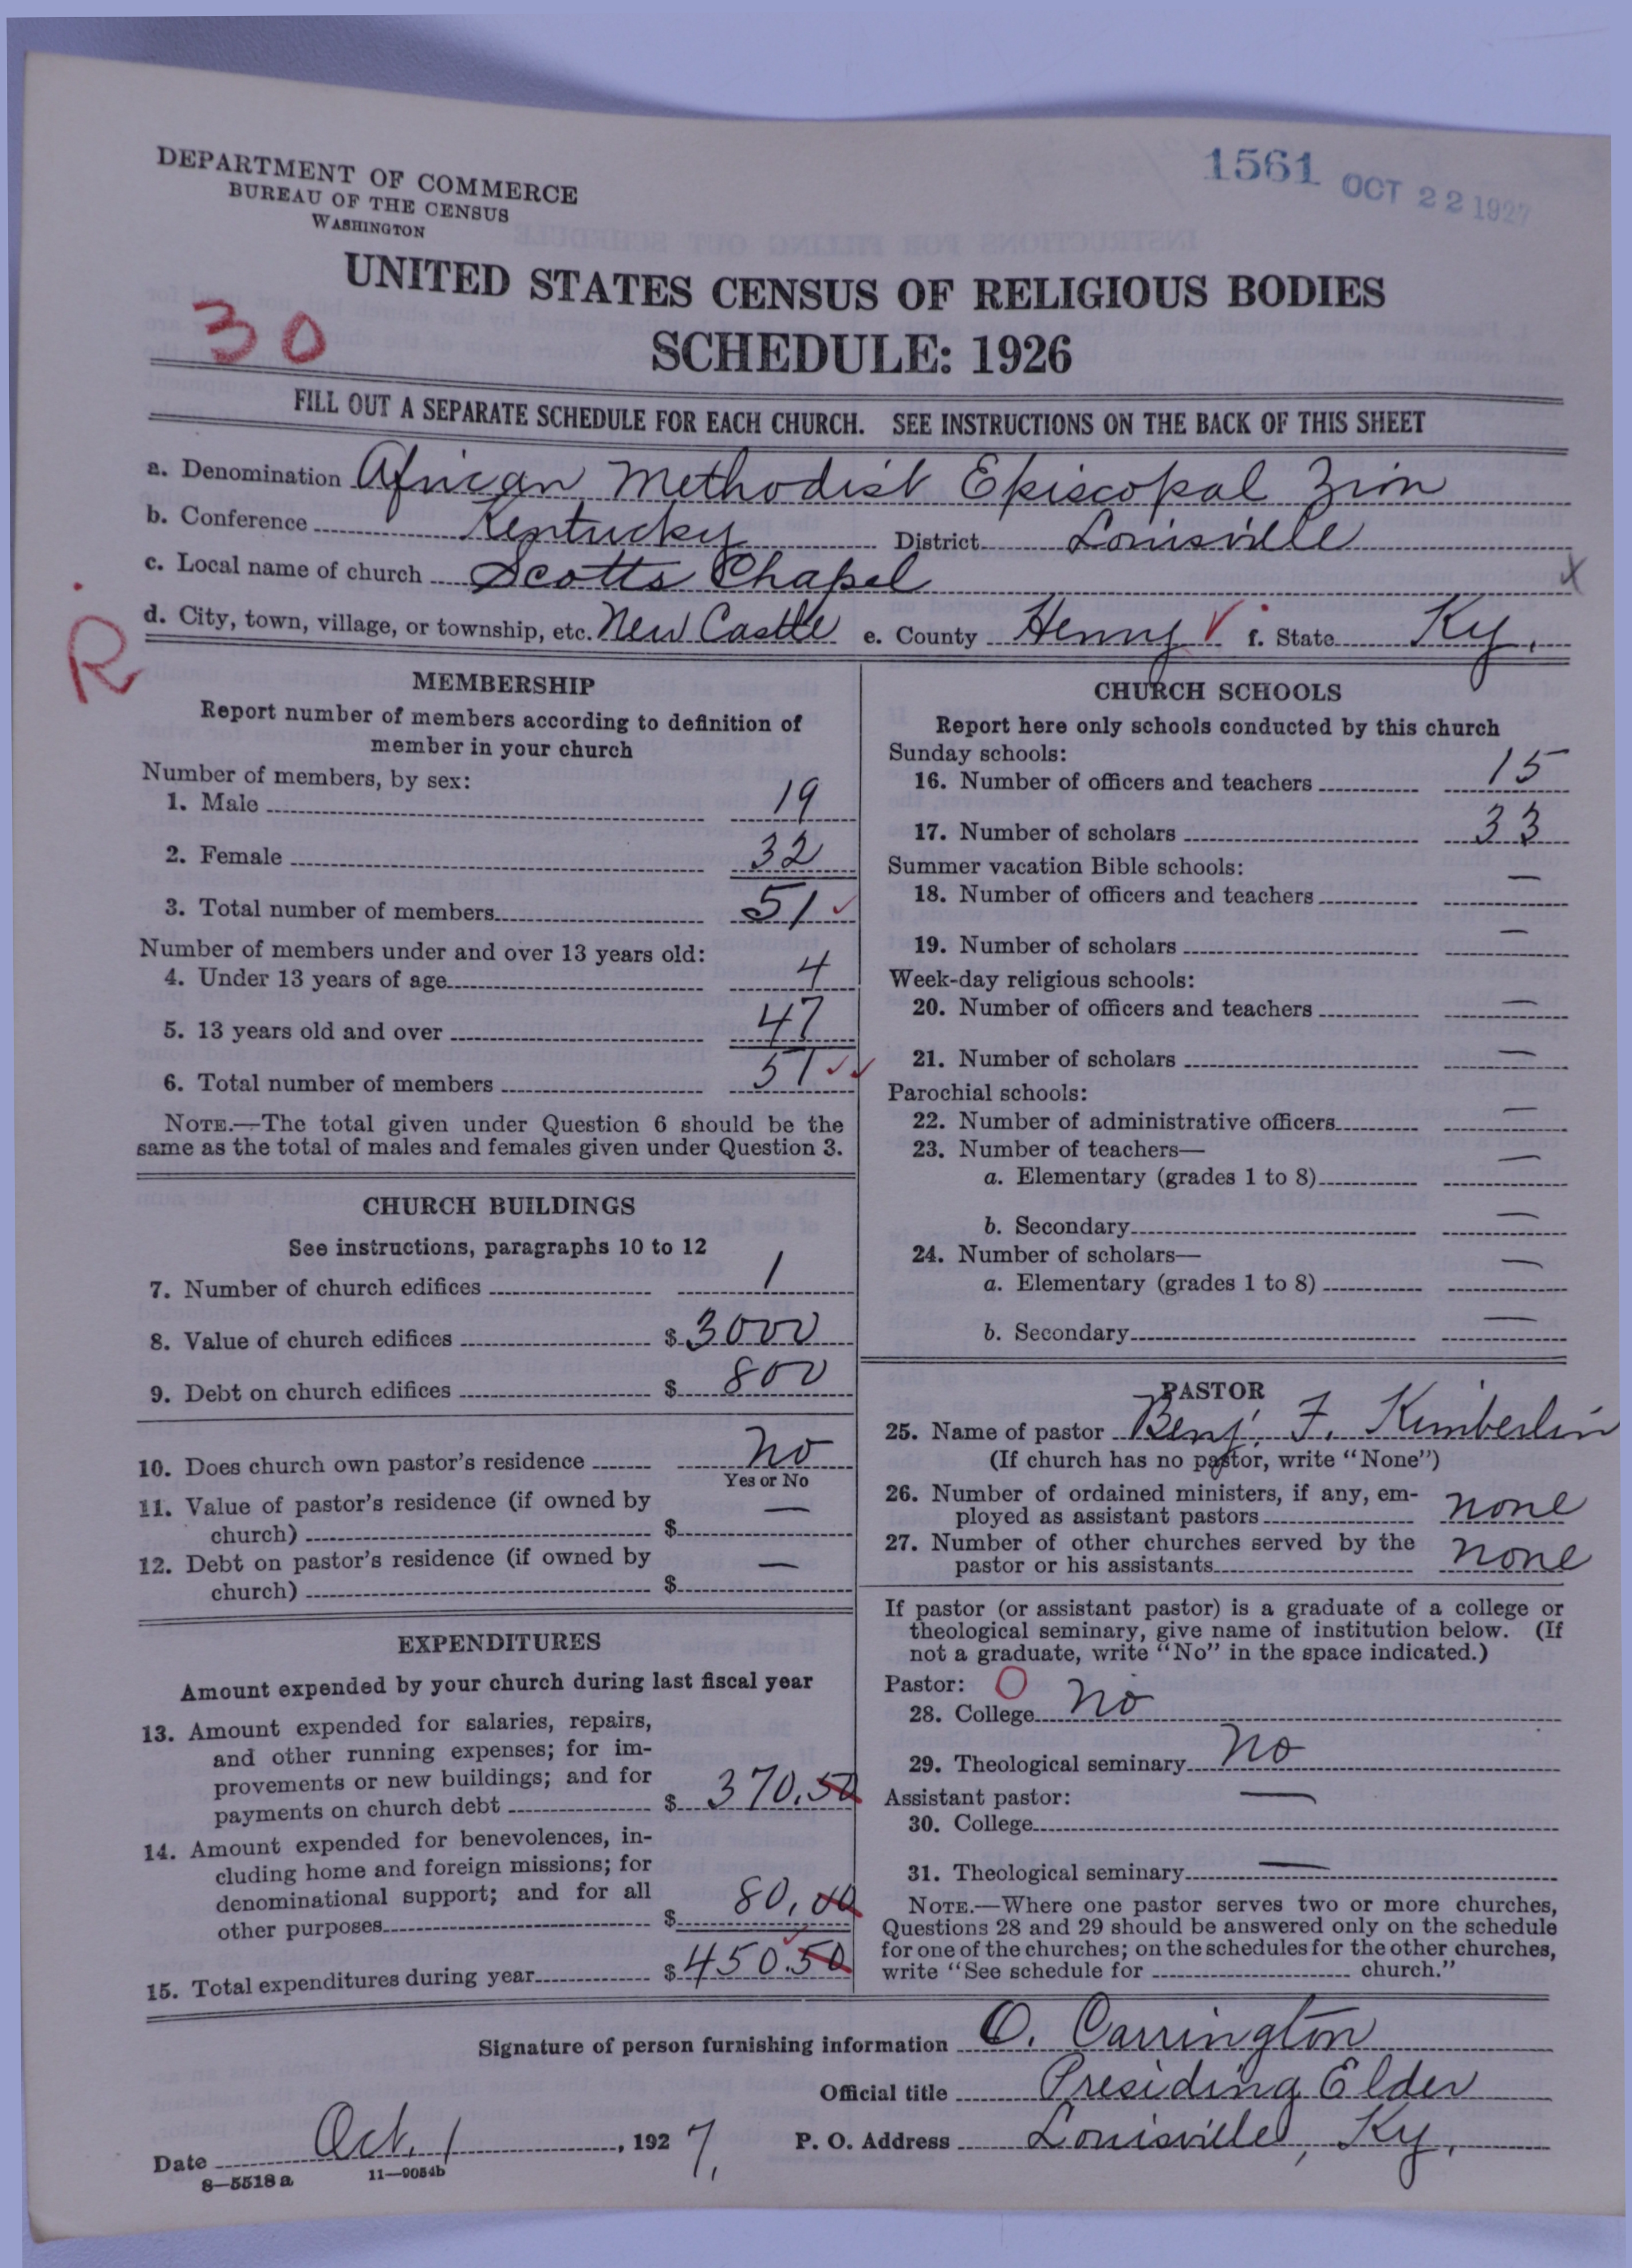 DEPARTMENT OF COMMERCE
BUREAU OF THE CENSUS
WASHINGTON
1561 OCT 22 1927
UNITED STATES CENSUS OF RELIGIOUS BODIES
30
SCHEDULE: 1926
FILL OUT A SEPARATE SCHEDULE FOR EACH CHURCH. SEE INSTRUCTIONS ON THE BACK OF THIS SHEET
a. Denomination African Methodist Episcopal Zion
b. Conference Kentucky District Louisville
c. Local name of church Scotts Chapel X
d. City, town, village, or township, etc. New Castle e. County Henry f. State Ky.
R
MEMBERSHIP
Report number of members according to definition of
member in your church
Number of members, by sex:
1. Male 19
2. Female 32
3. Total number of members 51
Number of members under and over 13 years old:
4. Under 13 years of age 4
5. 13 years old and over 47
6. Total number of members 51
NOTE.—The total given under Question 6 should be the
same as the total of males and females given under Question 3.
CHURCH BUILDINGS
See instructions, paragraphs 10 to 12
7. Number of church edifices 1
8. Value of church edifices $ 3000
9. Debt on church edifices $ 800
10. Does church own pastor's residence no
Yes or No
11. Value of pastor's residence (if owned by
church) $ —
12. Debt on pastor's residence (if owned by
church) $ —
EXPENDITURES
Amount expended by your church during last fiscal year
13. Amount expended for salaries, repairs,
and other running expenses; for im-
provements or new buildings; and for
payments on church debt $ 370.50
14. Amount expended for benevolences, in-
cluding home and foreign missions; for
denominational support; and for all
other purposes $ 80.00
15. Total expenditures during year $ 450.50
CHURCH SCHOOLS
Report here only schools conducted by this church
Sunday schools:
16. Number of officers and teachers 15
17. Number of scholars 33
Summer vacation Bible schools:
18. Number of officers and teachers —
19. Number of scholars —
Week-day religious schools:
20. Number of officers and teachers —
21. Number of scholars —
Parochial schools:
22. Number of administrative officers —
23. Number of teachers—
a. Elementary (grades 1 to 8) —
b. Secondary —
24. Number of scholars—
a. Elementary (grades 1 to 8) —
b. Secondary —
PASTOR
25. Name of pastor Benj. F. Kimberlin
(If church has no pastor, write "None")
26. Number of ordained ministers, if any, em-
ployed as assistant pastors none
27. Number of other churches served by the
pastor or his assistants none
If pastor (or assistant pastor) is a graduate of a college or
theological seminary, give name of institution below. (If
not a graduate, write "No" in the space indicated.)
Pastor: O
28. College no
29. Theological seminary no
Assistant pastor: —
30. College
31. Theological seminary —
NOTE.—Where one pastor serves two or more churches,
Questions 28 and 29 should be answered only on the schedule
for one of the churches; on the schedules for the other churches,
write "See schedule for church."
Signature of person furnishing information O. Carrington
Official title Presiding Elder
Date Oct. 1, 1927. P. O. Address Louisville, Ky.
8—5518 a 11—9054b